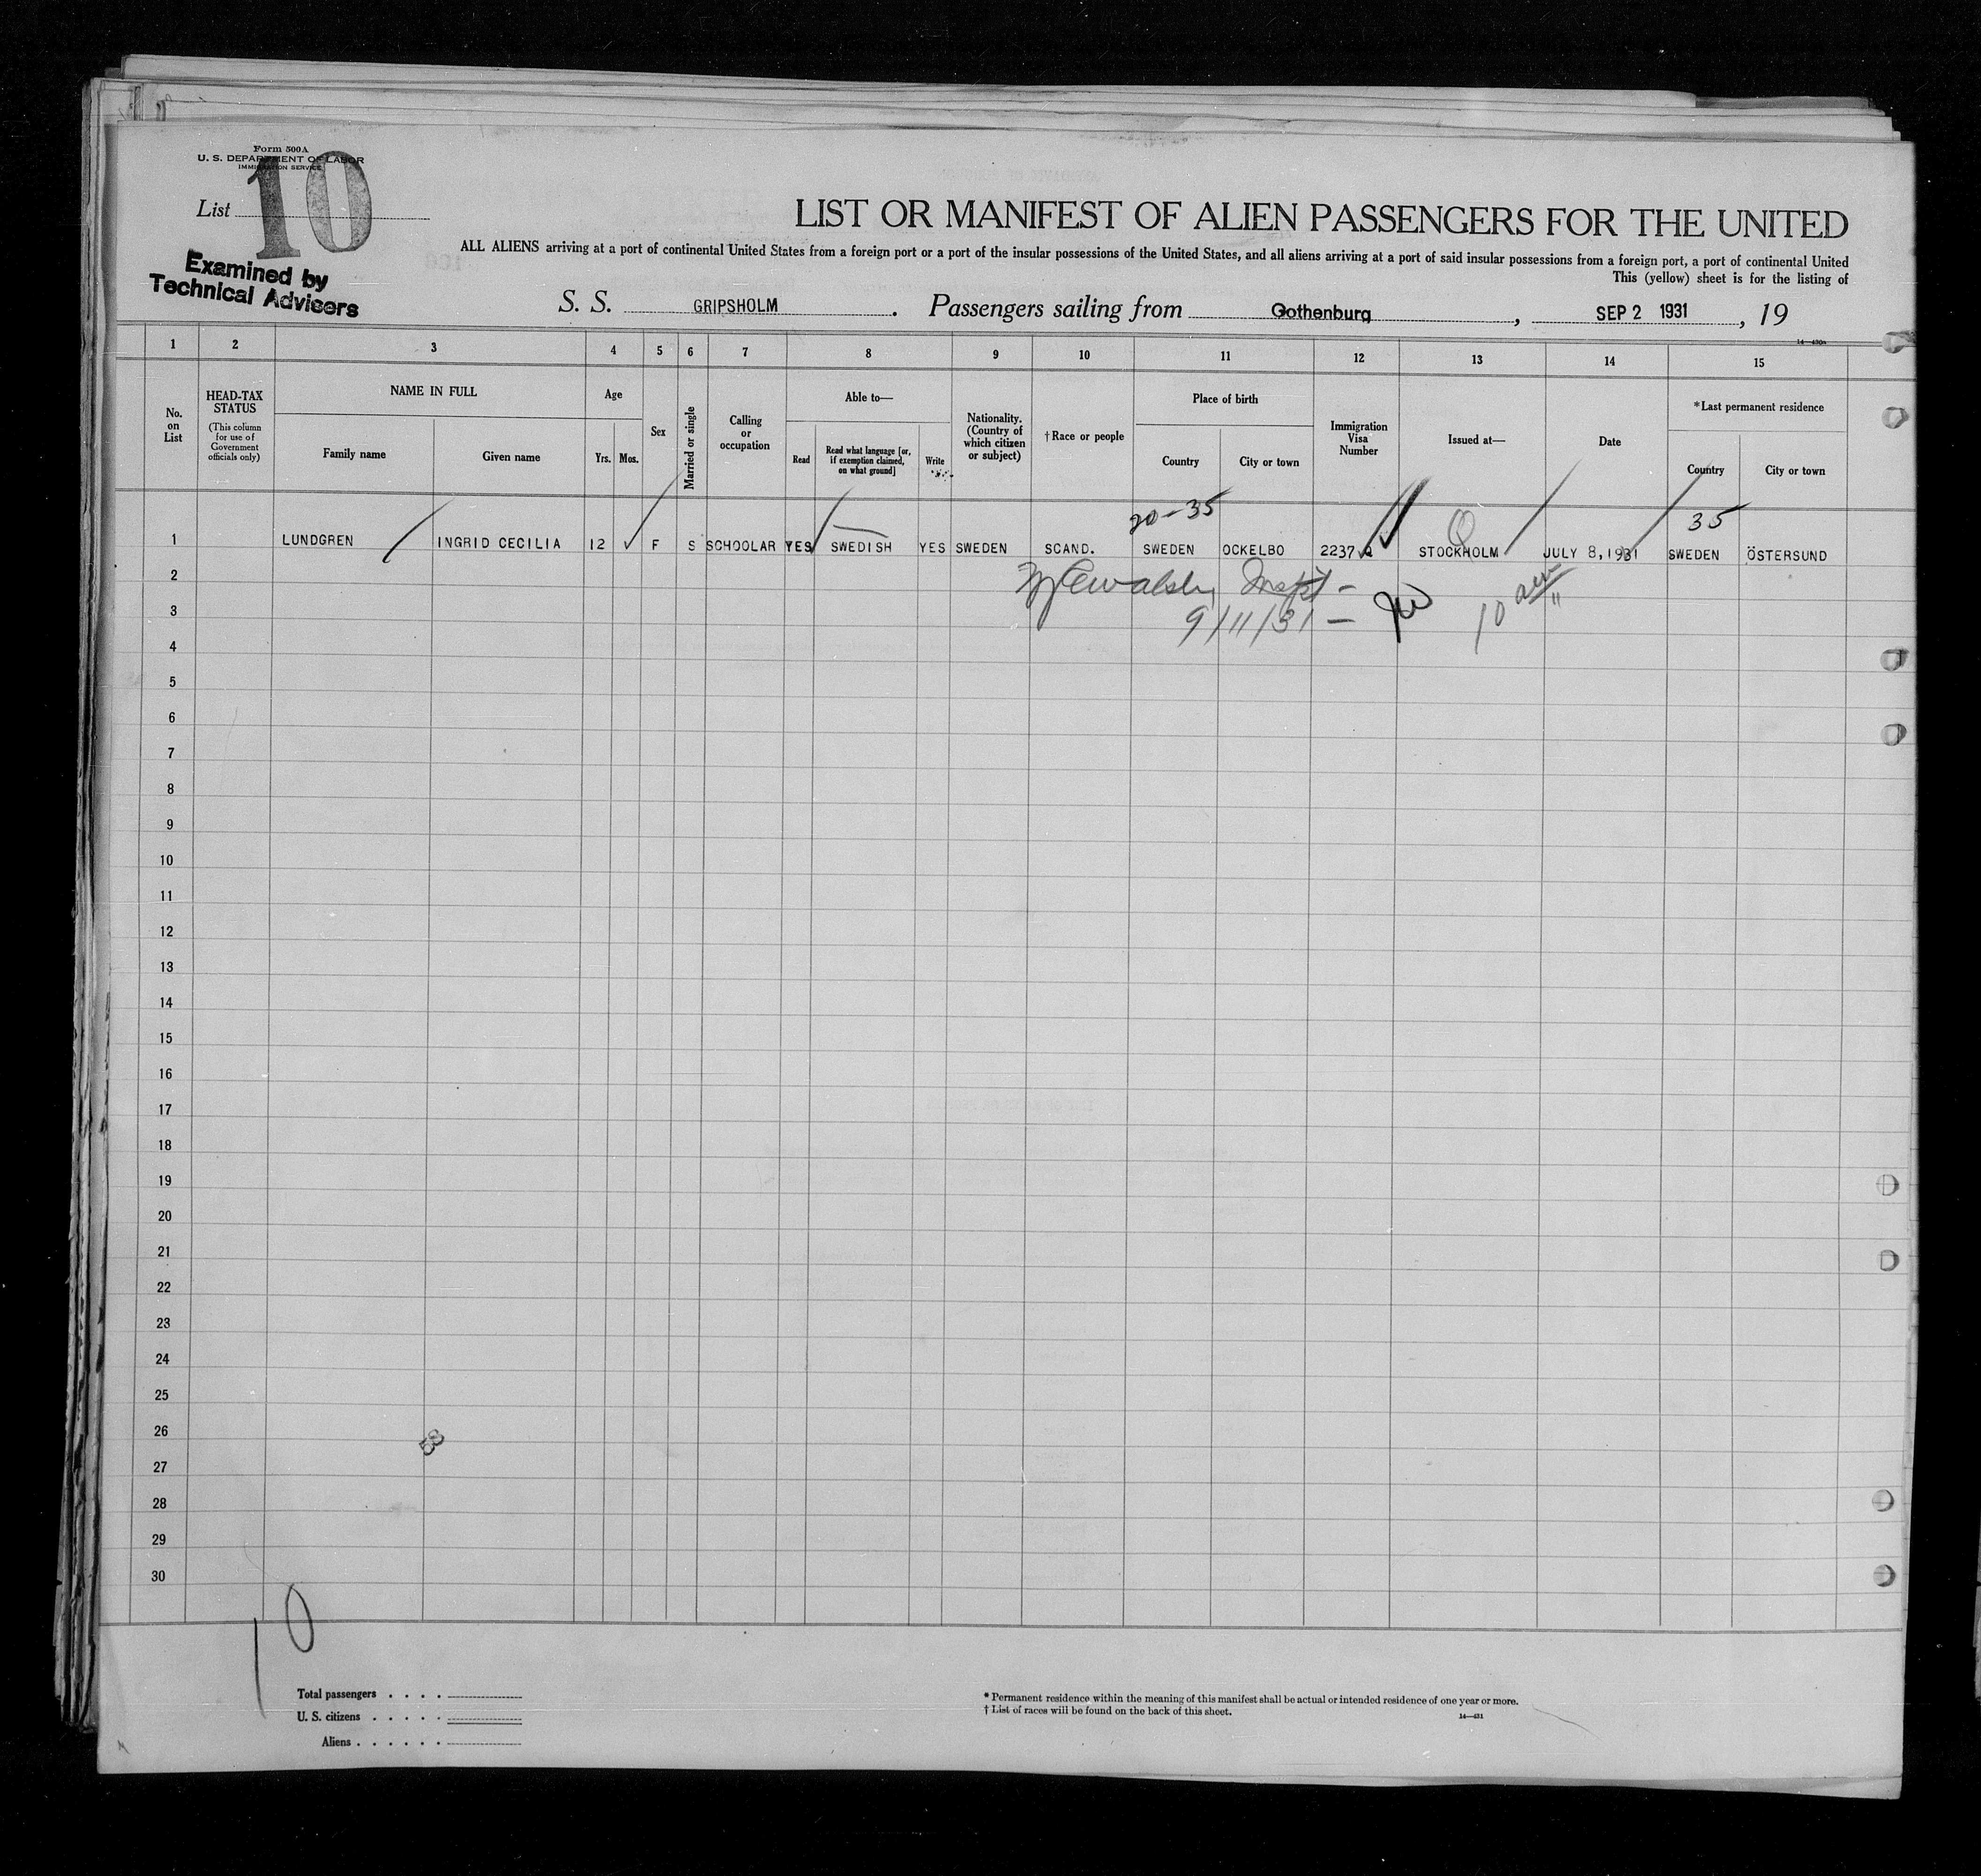 Form 500A
U. S. DEPARTMENT OF LABOR
IMMIGRATION SERVICE
List 10
Examined by
Technical Advisers
LIST OR MANIFEST OF ALIEN PASSENGERS FOR THE UNITED
ALL ALIENS arriving at a port of continental United States from a foreign port or a port of the insular possessions of the United States, and all aliens arriving at a port of said insular possessions from a foreign port, a port of continental United
This (yellow) sheet is for the listing of
S. S. GRIPSHOLM. Passengers sailing from Gothenburg, SEP 2 1931, 19
1 2 3 4 5 6 7 8 9 10 11 12 13 14 15
No. on List
HEAD-TAX STATUS
(This column for use of Government officials only)
NAME IN FULL
Family name
Given name
Age
Yrs.
Mos.
Sex
Married or single
Calling or occupation
Able to—
Read
Read what language [or, if exemption claimed, on what ground]
Write
Nationality. (Country of which citizen or subject)
†Race or people
Place of birth
Country
City or town
Immigration Visa Number
Issued at—
Date
*Last permanent residence
Country
City or town
20-35
35
1 LUNDGREN INGRID CECILIA 12 ✓ F S SCHOOLAR YES SWEDISH YES SWEDEN SCAND. SWEDEN OCKELBO 2237 Q STOCKHOLM JULY 8,1931 SWEDEN ÖSTERSUND
2
3 9/11/31 — 10
4
5
6
7
8
9
10
11
12
13
14
15
16
17
18
19
20
21
22
23
24
25
26
27
28
29
30
10
Total passengers . . . .
U. S. citizens . . . . .
Aliens . . . . . .
* Permanent residence within the meaning of this manifest shall be actual or intended residence of one year or more.
† List of races will be found on the back of this sheet.
14—431